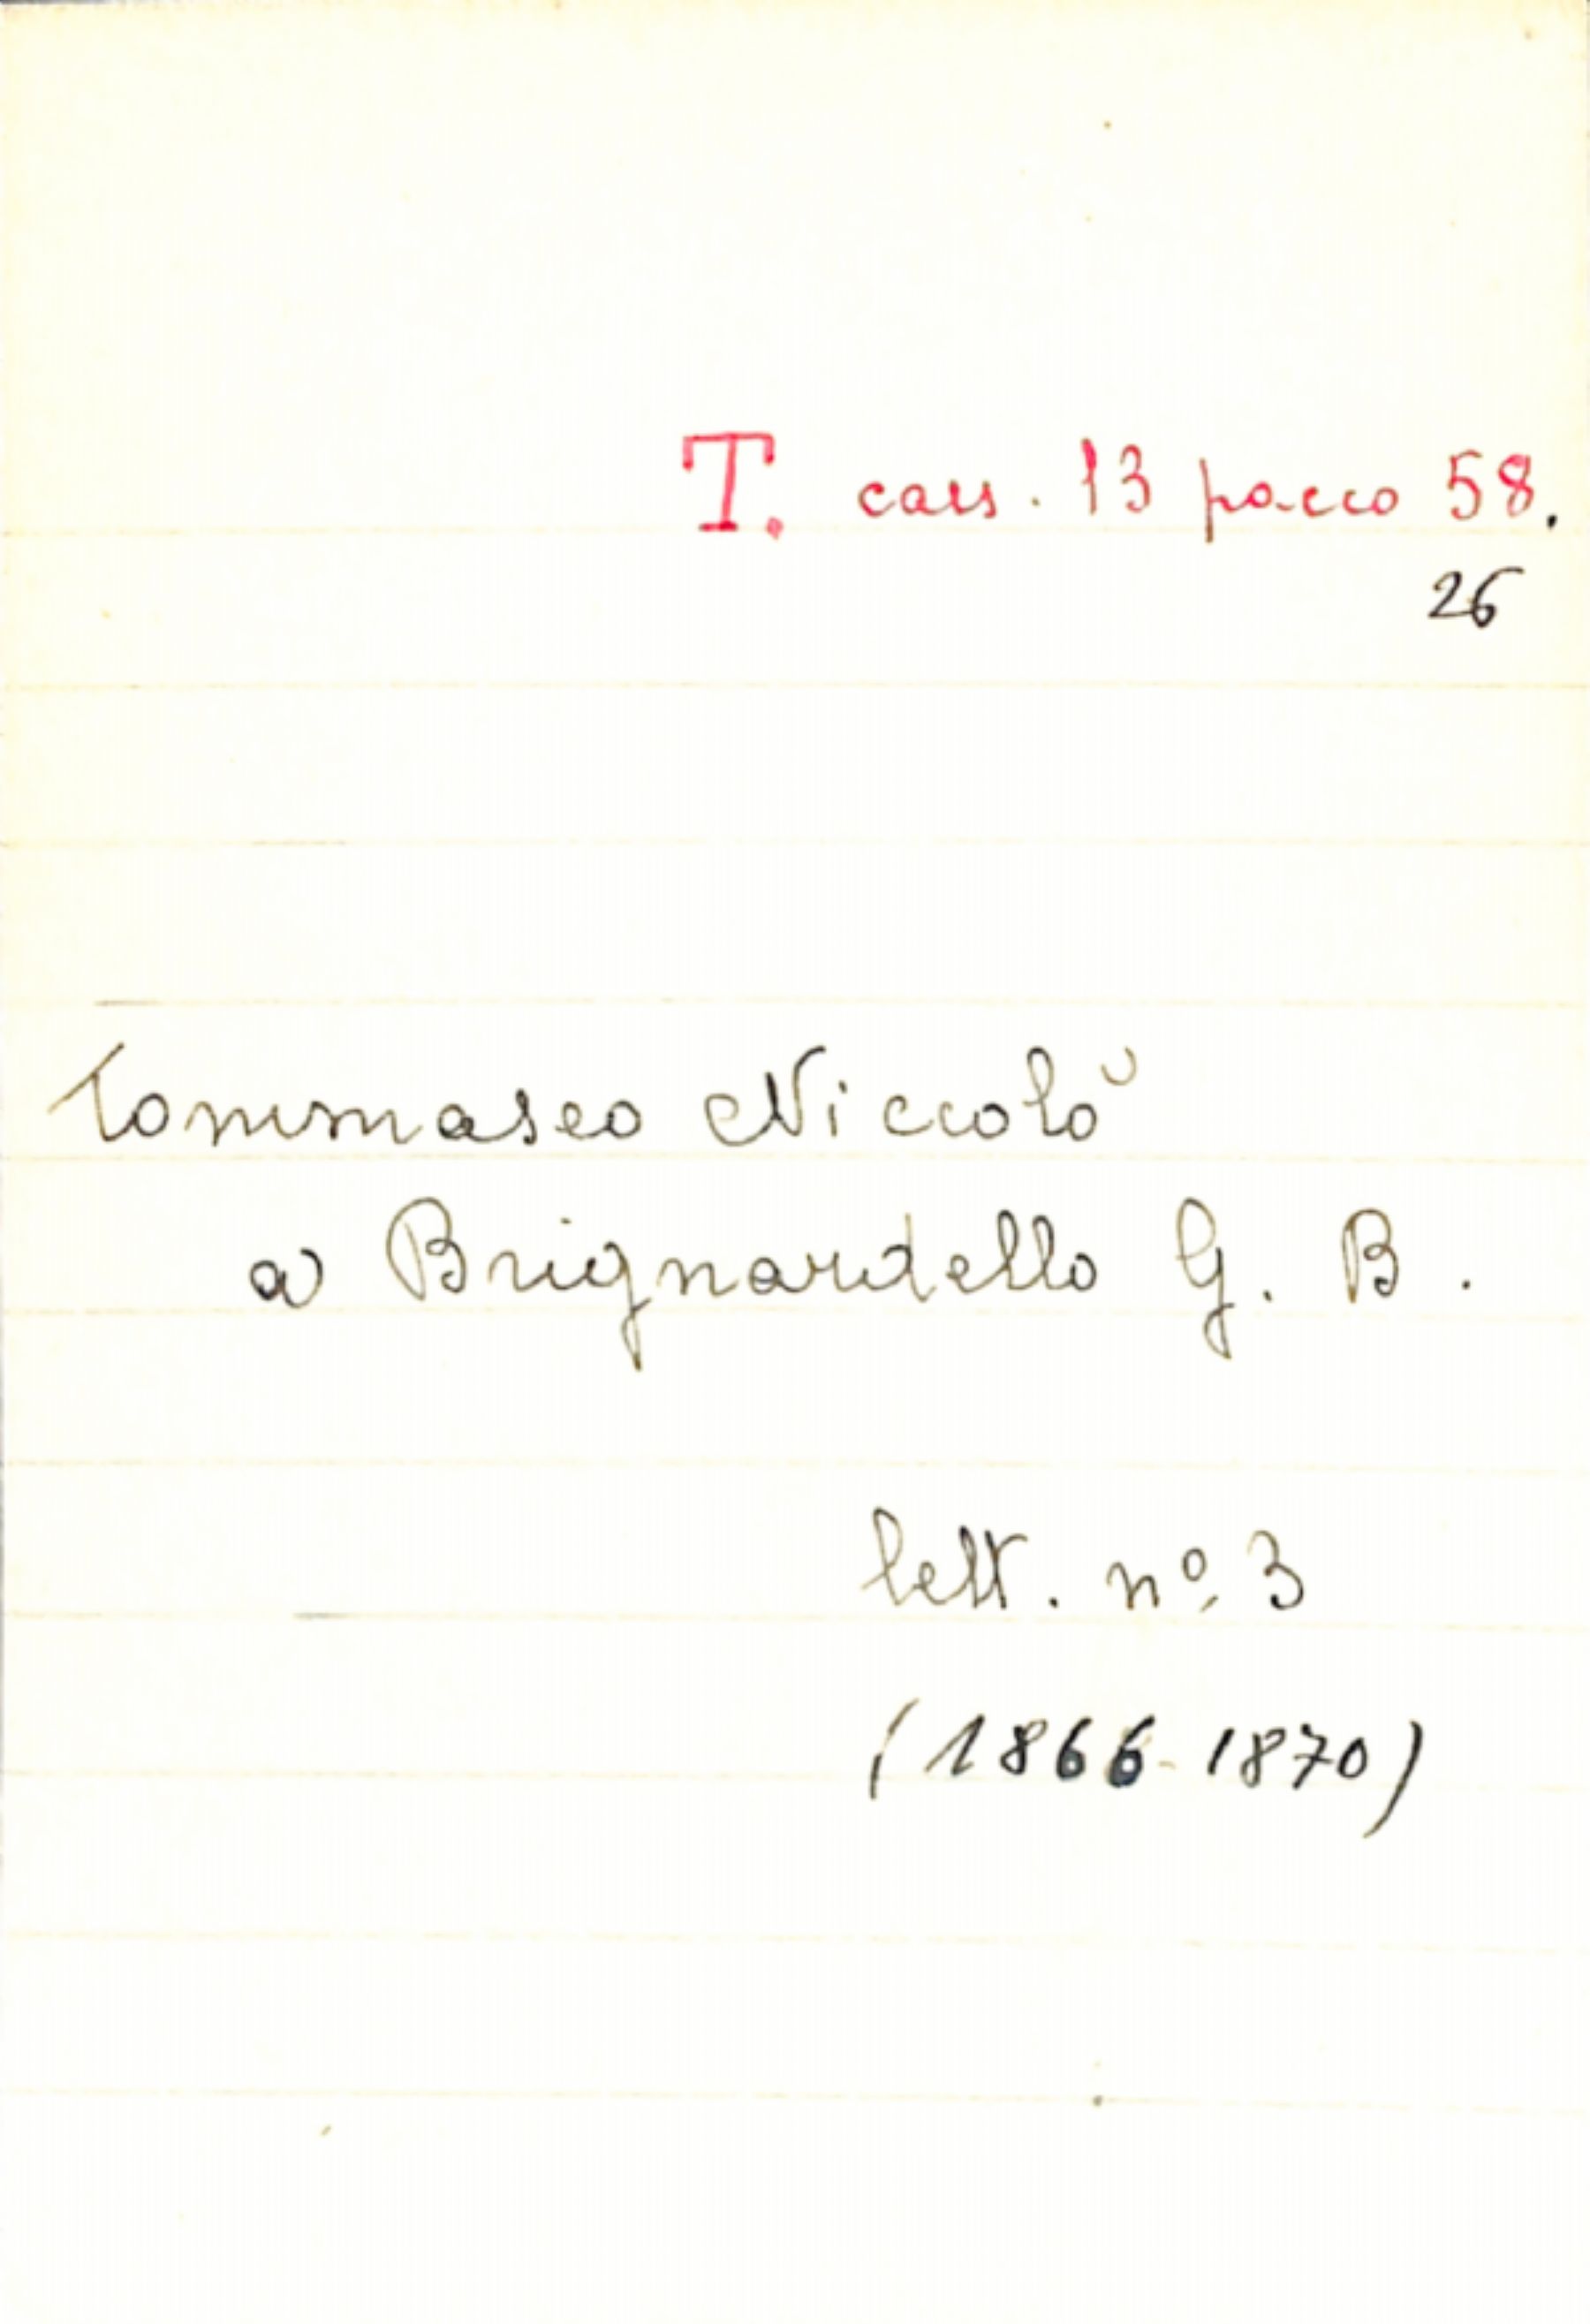 T. cass. 13 pacco 58.
26
Tommaseo Niccolò
a Brignardello G. B.
lett. nº. 3
(1866-1870)